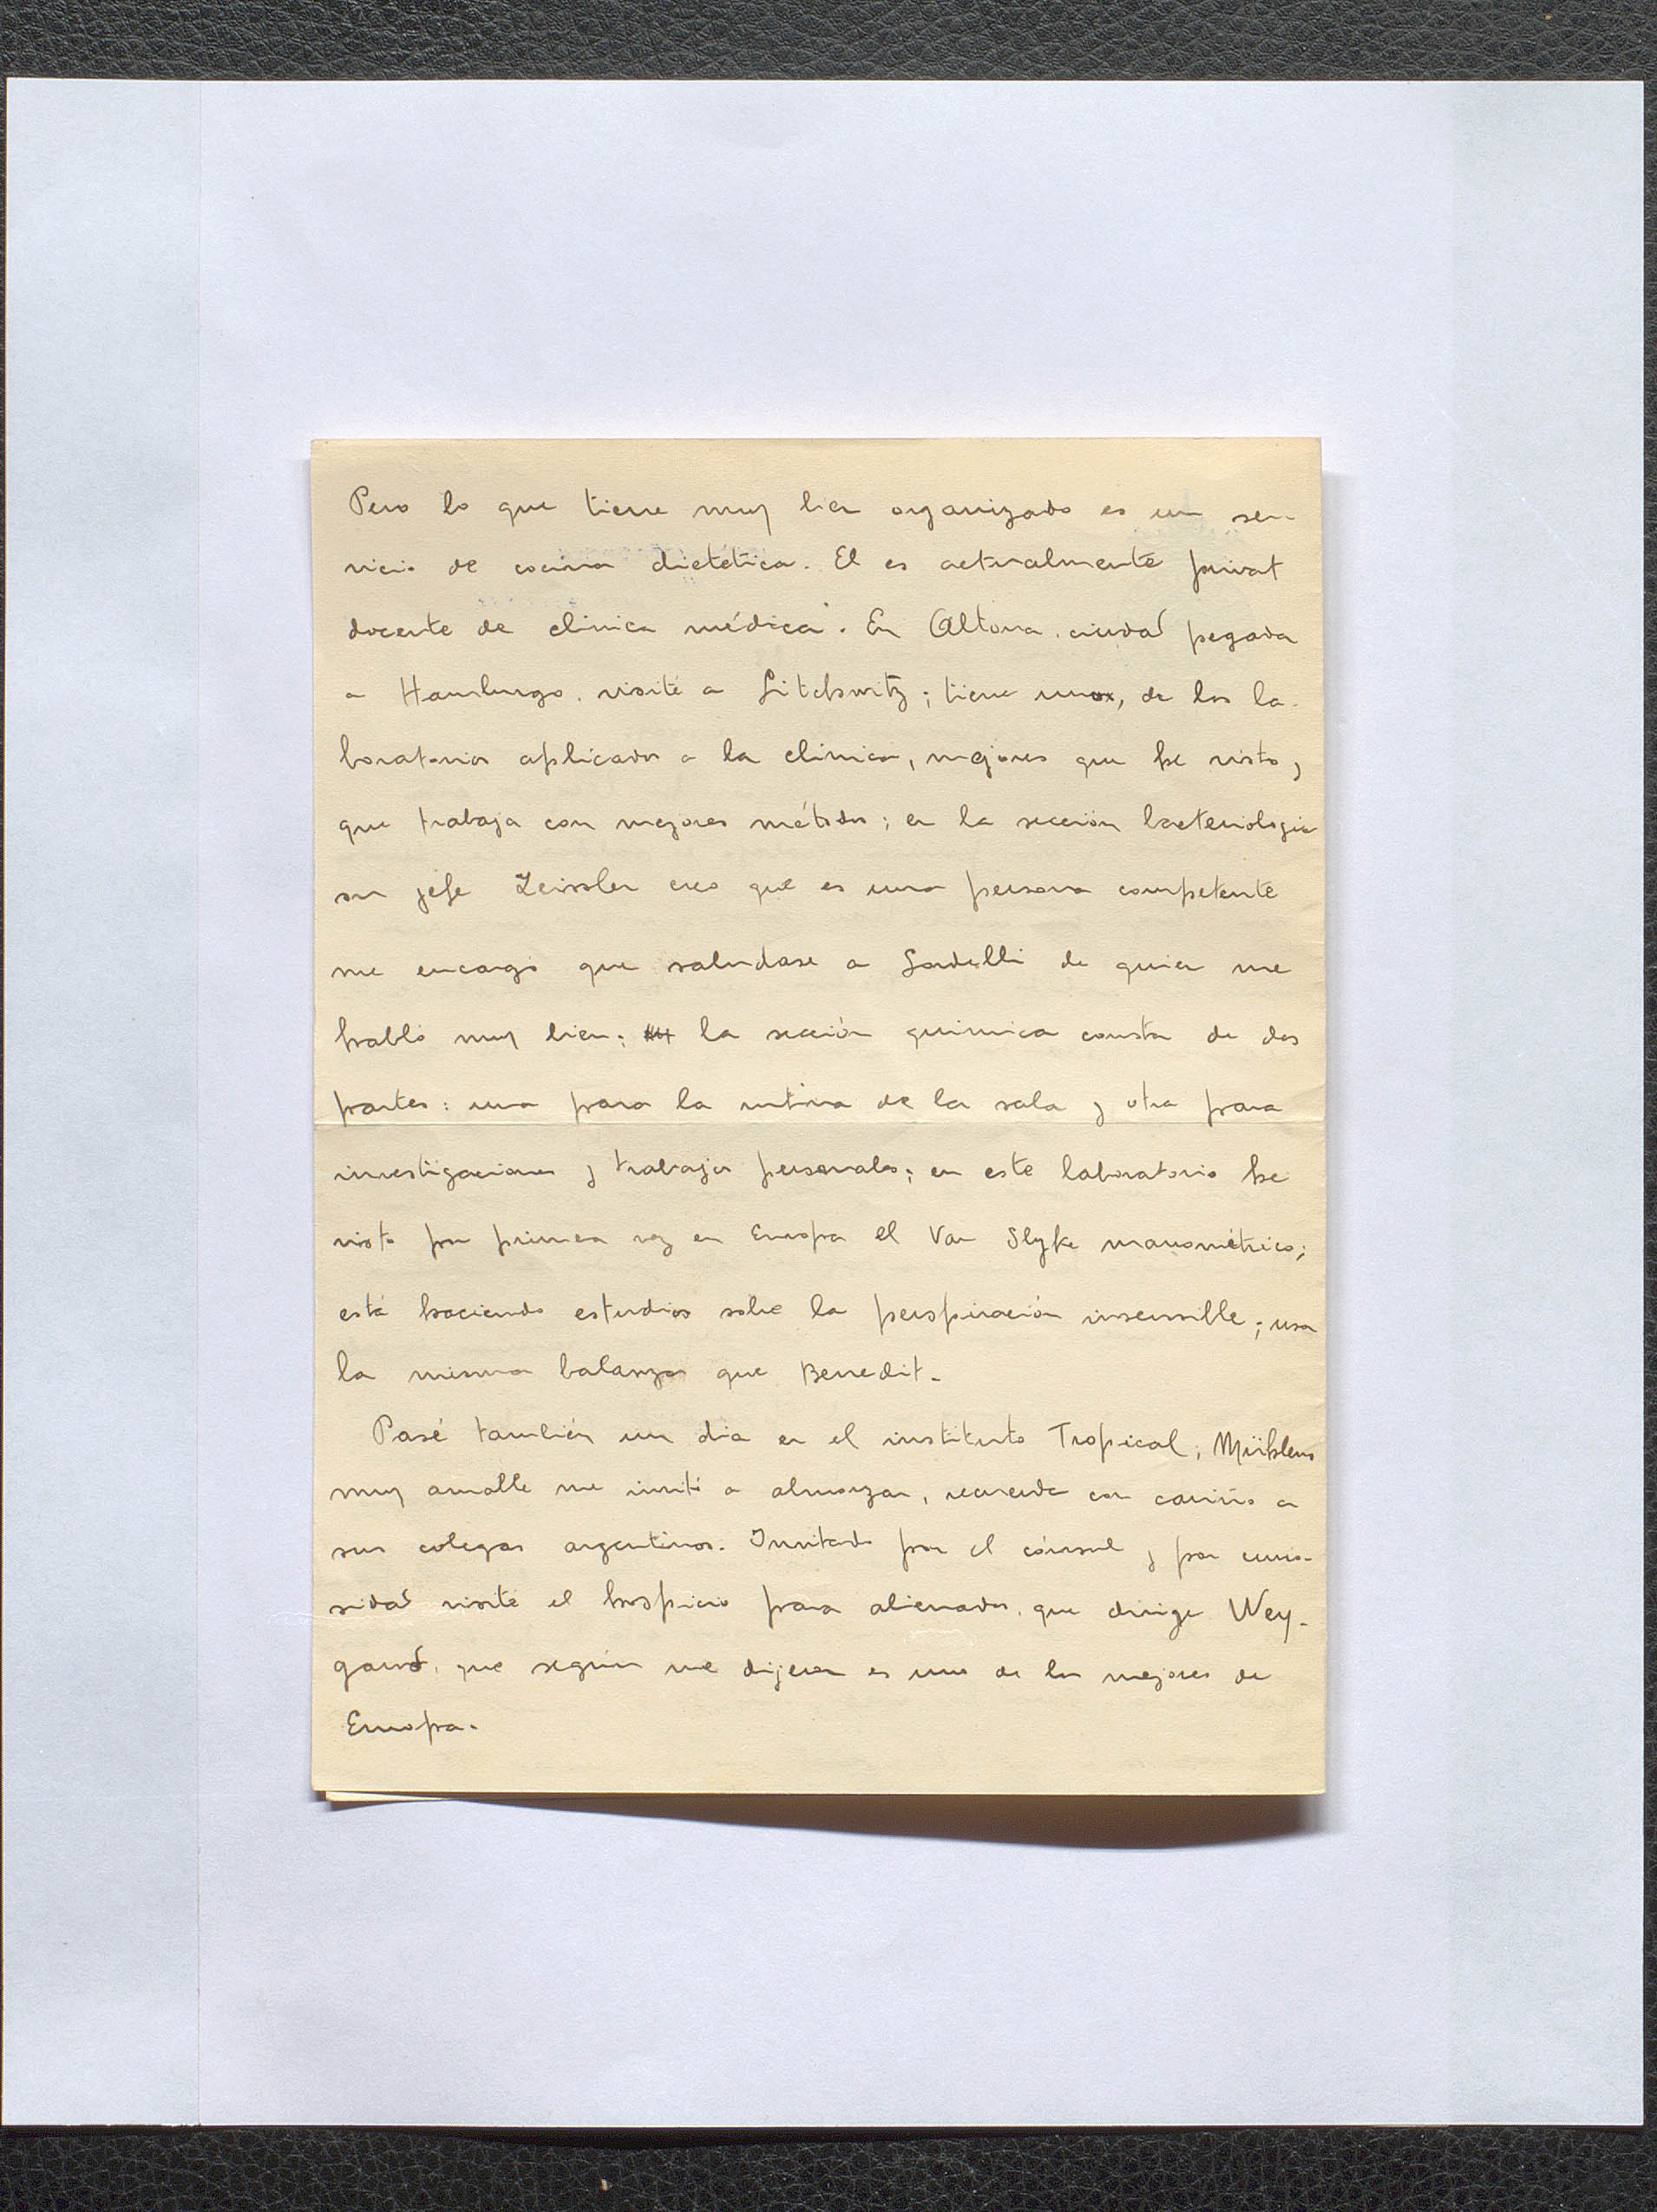 Pero lo que tiene muy bien organizado es un ser-
vicio de cocina dietética. El es actualmente privat
docente de clinica médica. En Altona, ciudad pegada
a Hamburgo, visité a Litchwitz; tiene uno, de los la-
boratorios aplicados a la clinica, mejores que he visto y
que trabaja con mejores métodos; en la sección bacteriologia
su jefe Zeissler creo que es una persona competente
me encargó que saludase a Sordelli de quien me
habló muy bien; la sección quimica consta de dos
partes: una para la rutina de la sala y otra para
investigaciones y trabajos personales; en este laboratorio he
visto por primera vez en Europa el Van Slyke manométrico;
está haciendo estudios sobre la perspiración insensible; usa
la misma balanza que Benedit.
Pasé también un dia en el instituto Tropical; Mühlens
muy amable me invitó a almorzar, recuerda con cariño a
sus colegas argentinos. Invitado por el cónsul y por curio-
sidad visité el hospicio para alienados, que dirige Wey-
gand, que según me dijeron es uno de los mejores de
Europa.